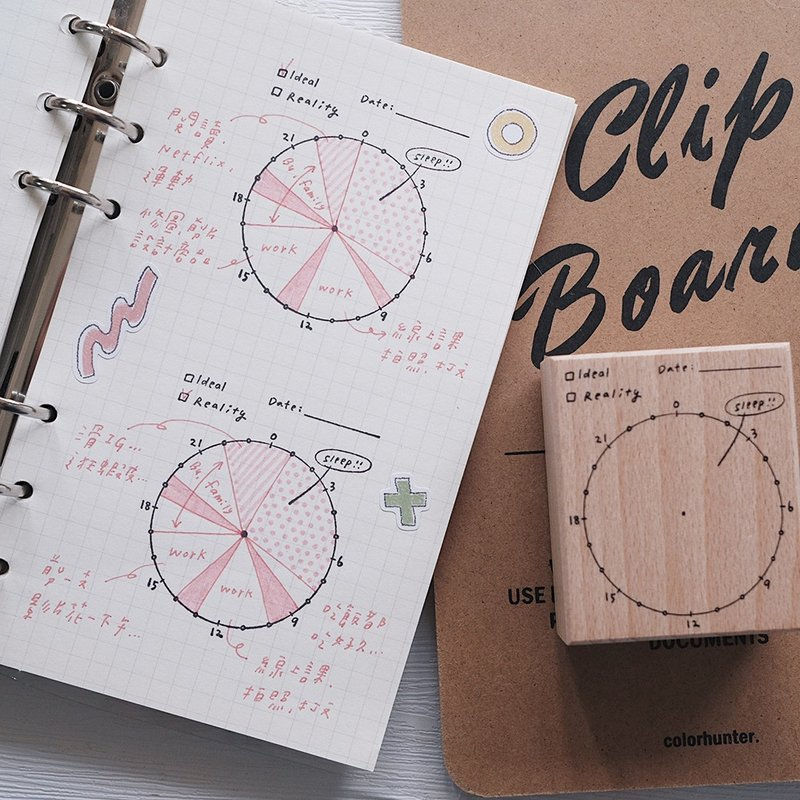 Ideal
Reality
Date:
閱讀,
Netflix,
運動
sleep!!
0
3
6
9
12
15
18
21
Bu. family
work
work
線上課
拍照.打文
Ideal
Reality
Date:
滑IG...
sleep!!
0
3
6
9
12
15
18
21
Bu. family
work
work
影片花一下午...
吃飯部
吃好久...
線上課.
拍照.打文
Clip
Board
Ideal
Reality
Date:
sleep!!
0
3
6
9
12
15
18
21
USE
DOCUMENTS
colorhunter.